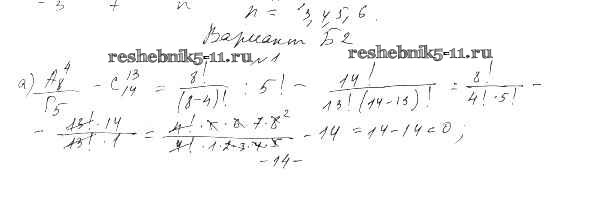 n = 3, 4, 5, 6.
Вариант Б2
reshebnik5-11.ru
reshebnik5-11.ru
№1
а) A₈⁴ / P₅ − C₁₄¹³ = 8! / (8-4)! : 5! − 14! / 13!(14-13)! = 8! / 4!·5! −
− 13!·14 / 13!·1 = 4!·5·6·7·8² / 4!·1·2·3·4·5 − 14 = 14 − 14 = 0;
-14-